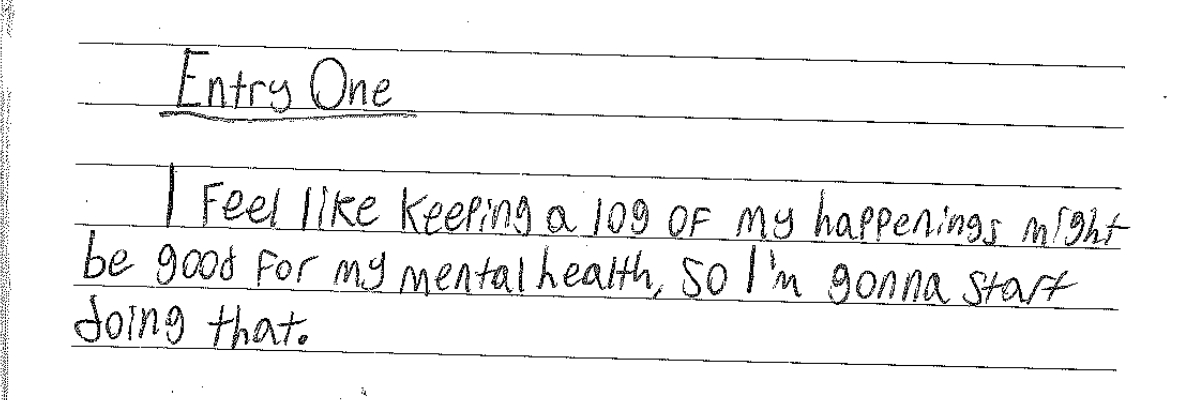 Entry One
I Feel like keeping a log of my happenings might
be good for my mental health, so I'm gonna start
doing that.